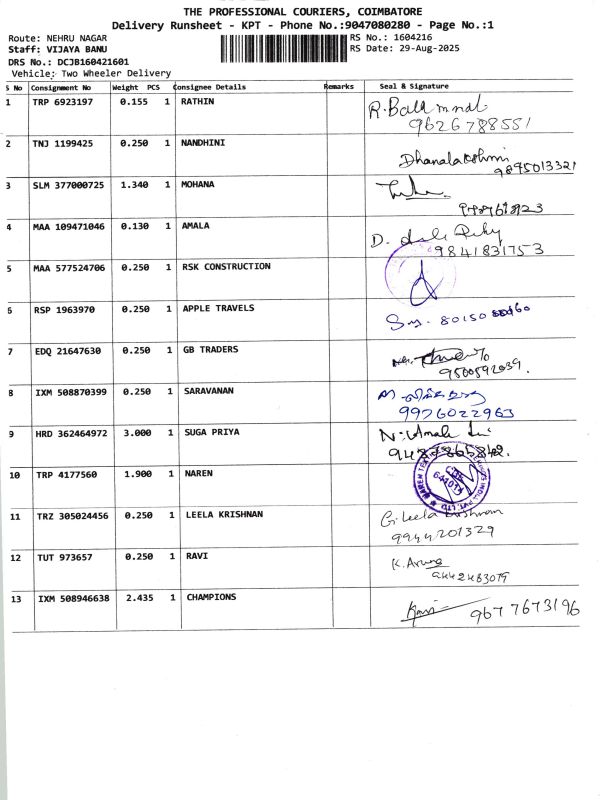 THE PROFESSIONAL COURIERS, COIMBATORE
Delivery Runsheet - KPT - Phone No.:9047080280 - Page No.:1
Route: NEHRU NAGAR
RS No.: 1604216
Staff: VIJAYA BANU
RS Date: 29-Aug-2025
DRS No.: DCJB160421601
Vehicle: Two Wheeler Delivery
S No Consignment No Weight PCS Consignee Details Remarks Seal & Signature
1 TRP 6923197 0.155 1 RATHIN
9626788551
2 TNJ 1199425 0.250 1 NANDHINI
Dhanalakshmi
9895013321
3 SLM 377000725 1.340 1 MOHANA
4 MAA 109471046 0.130 1 AMALA
D.
9841831753
5 MAA 577524706 0.250 1 RSK CONSTRUCTION
6 RSP 1963970 0.250 1 APPLE TRAVELS
7 EDQ 21647630 0.250 1 GB TRADERS
9500592039.
8 IXM 508870399 0.250 1 SARAVANAN
9976022963
9 HRD 362464972 3.000 1 SUGA PRIYA
10 TRP 4177560 1.900 1 NAREN
11 TRZ 305024456 0.250 1 LEELA KRISHNAN
G. Leela Krishnan
9944201329
12 TUT 973657 0.250 1 RAVI
K. Aruna
9442483079
13 IXM 508946638 2.435 1 CHAMPIONS
Ravi 9677673196